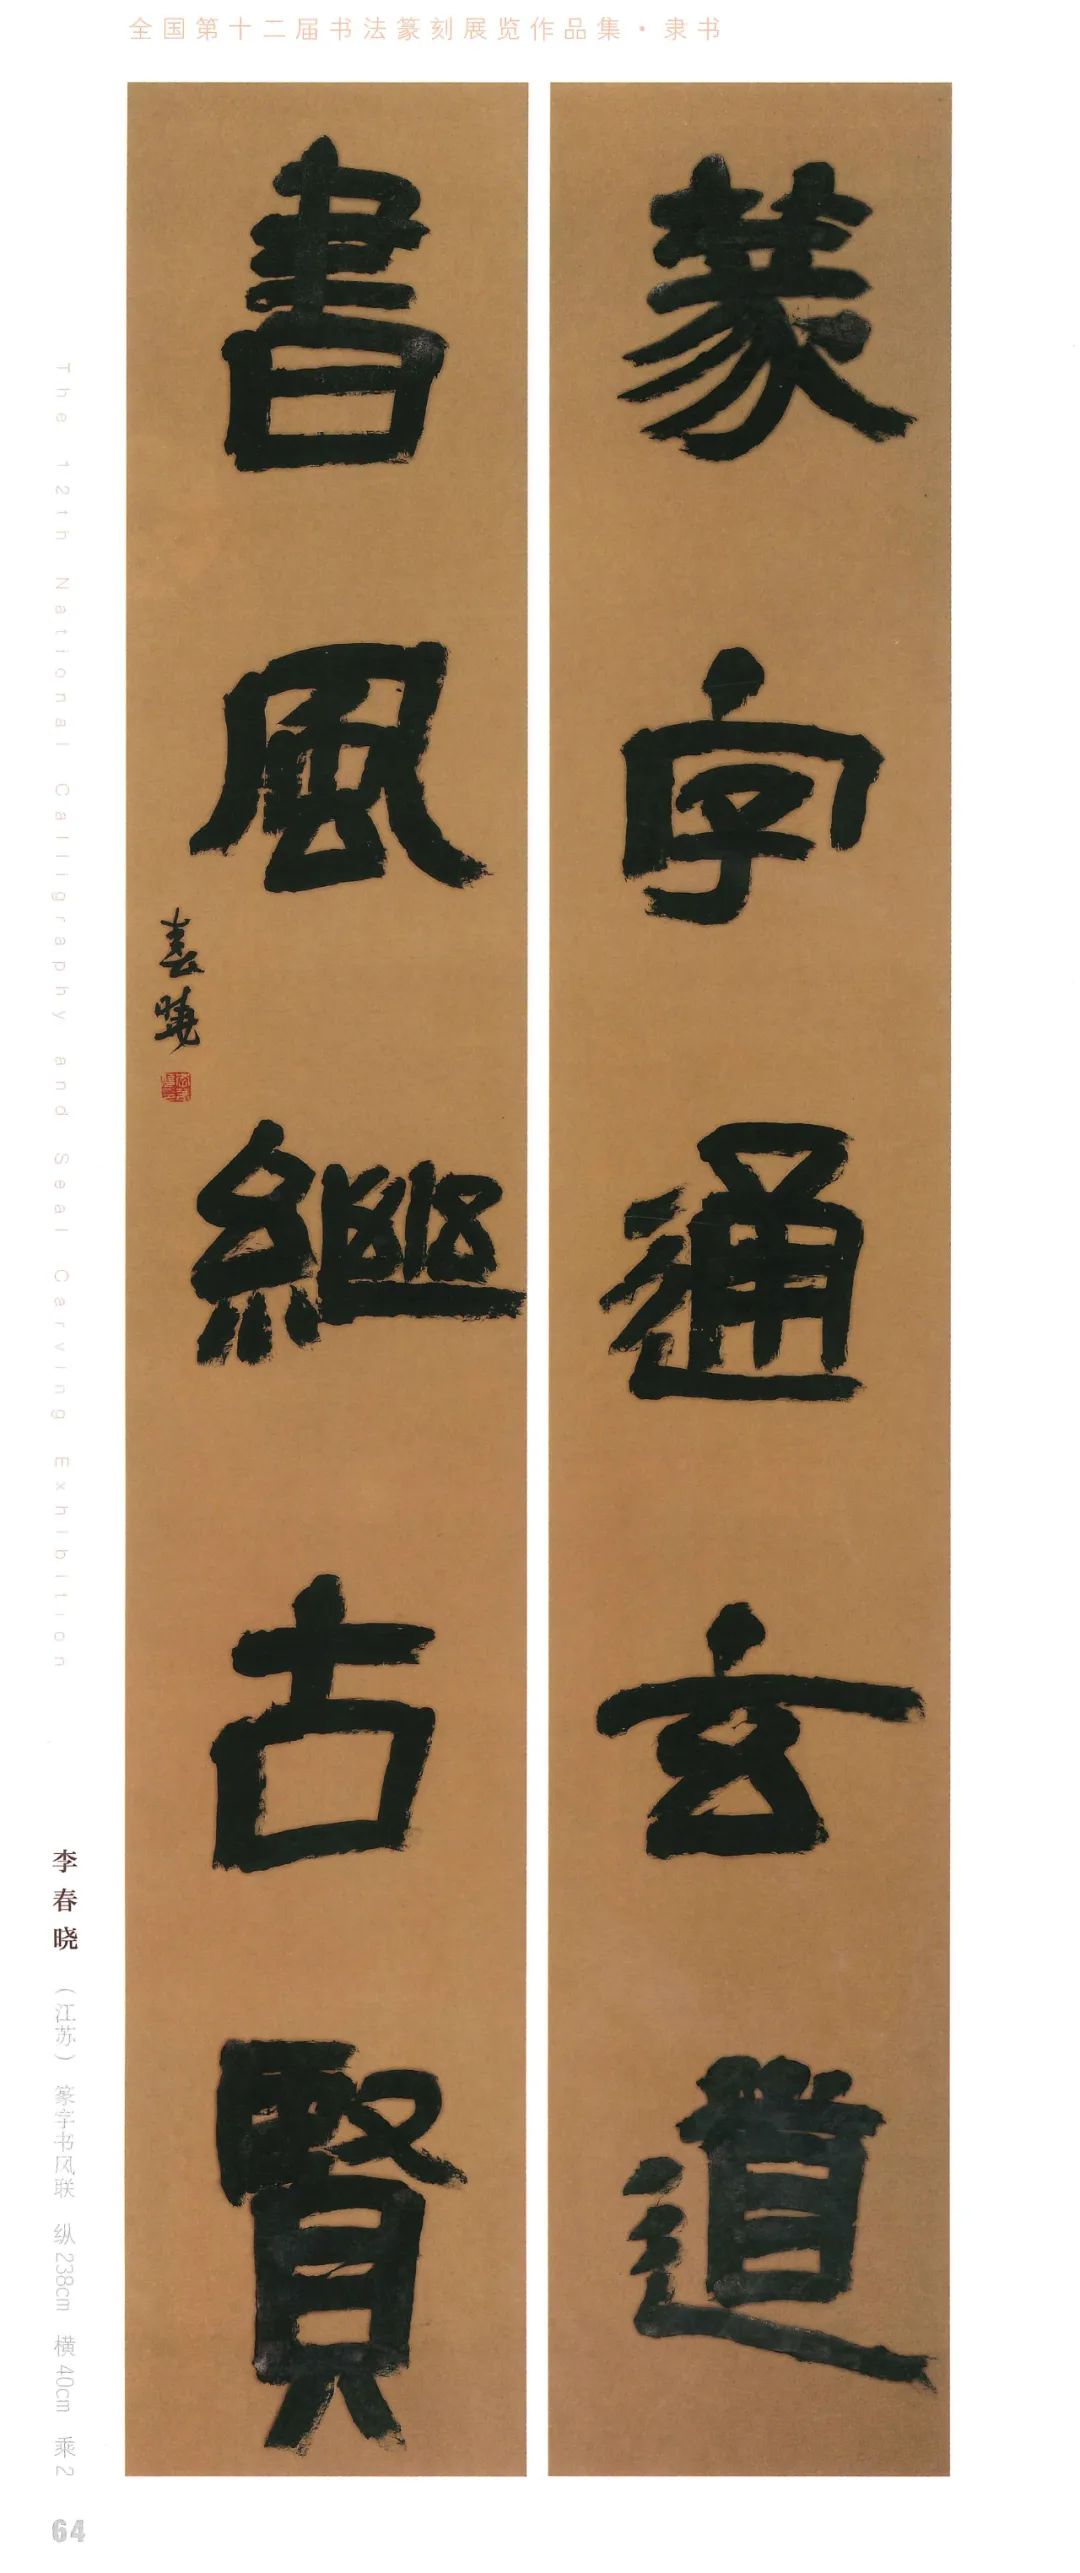 全国第十二届书法篆刻展览作品集·隶书
篆字通玄道
書風繼古賢
春曉
The 12th National Calligraphy and Seal Carving Exhibition
李春晓 （江苏） 篆字书风联 纵238cm 横40cm 乘2
64